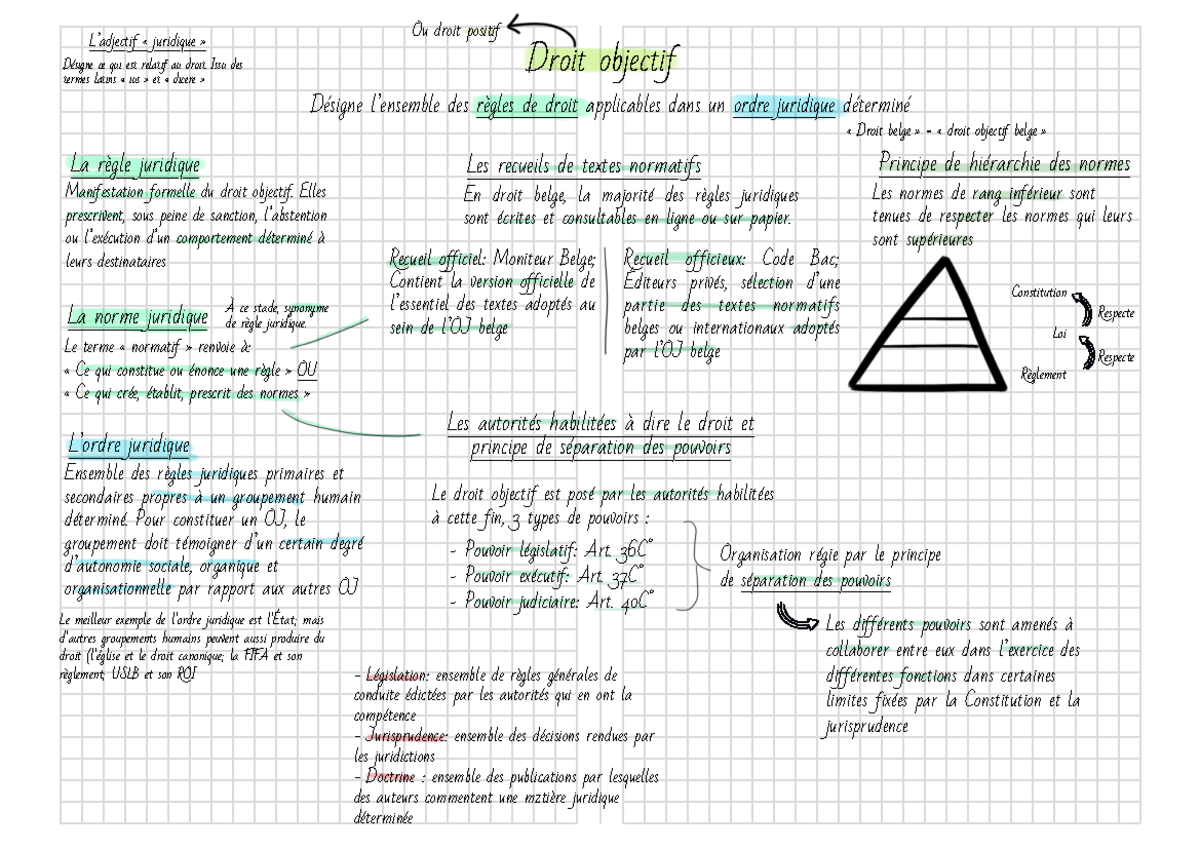 Ou droit positif
L'adjectif « juridique »
Désigne ce qui est relatif au droit. Issu des
termes latins « ius » et « dicere »
Droit objectif
Désigne l'ensemble des règles de droit applicables dans un ordre juridique déterminé
« Droit belge » = « droit objectif belge »
La règle juridique
Manifestation formelle du droit objectif. Elles
prescrivent, sous peine de sanction, l'abstention
ou l'exécution d'un comportement déterminé à
leurs destinataires
La norme juridique
À ce stade, synonyme
de règle juridique.
Le terme « normatif » renvoie à:
« Ce qui constitue ou énonce une règle » OU
« Ce qui crée, établit, prescrit des normes »
L'ordre juridique
Ensemble des règles juridiques primaires et
secondaires propres à un groupement humain
déterminé. Pour constituer un OJ, le
groupement doit témoigner d'un certain degré
d'autonomie sociale, organique et
organisationnelle par rapport aux autres OJ
Le meilleur exemple de l'ordre juridique est l'État; mais
d'autres groupements humains peuvent aussi produire du
droit (l'église et le droit canonique; la FIFA et son
règlement; USLB et son ROI
Les recueils de textes normatifs
En droit belge, la majorité des règles juridiques
sont écrites et consultables en ligne ou sur papier.
Recueil officiel: Moniteur Belge;
Contient la version officielle de
l'essentiel des textes adoptés au
sein de l'OJ belge
Recueil officieux: Code Bac;
Éditeurs privés, sélection d'une
partie des textes normatifs
belges ou internationaux adoptés
par l'OJ belge
Principe de hiérarchie des normes
Les normes de rang inférieur sont
tenues de respecter les normes qui leurs
sont supérieures
Constitution
Respecte
Loi
Respecte
Règlement
Les autorités habilitées à dire le droit et
principe de séparation des pouvoirs
Le droit objectif est posé par les autorités habilitées
à cette fin, 3 types de pouvoirs :
- Pouvoir législatif: Art. 36C°
- Pouvoir exécutif: Art. 37C°
- Pouvoir judiciaire: Art. 40C°
Organisation régie par le principe
de séparation des pouvoirs
Les différents pouvoirs sont amenés à
collaborer entre eux dans l'exercice des
différentes fonctions dans certaines
limites fixées par la Constitution et la
jurisprudence
- Législation: ensemble de règles générales de
conduite édictées par les autorités qui en ont la
compétence
- Jurisprudence: ensemble des décisions rendues par
les juridictions
- Doctrine : ensemble des publications par lesquelles
des auteurs commentent une mztière juridique
déterminée